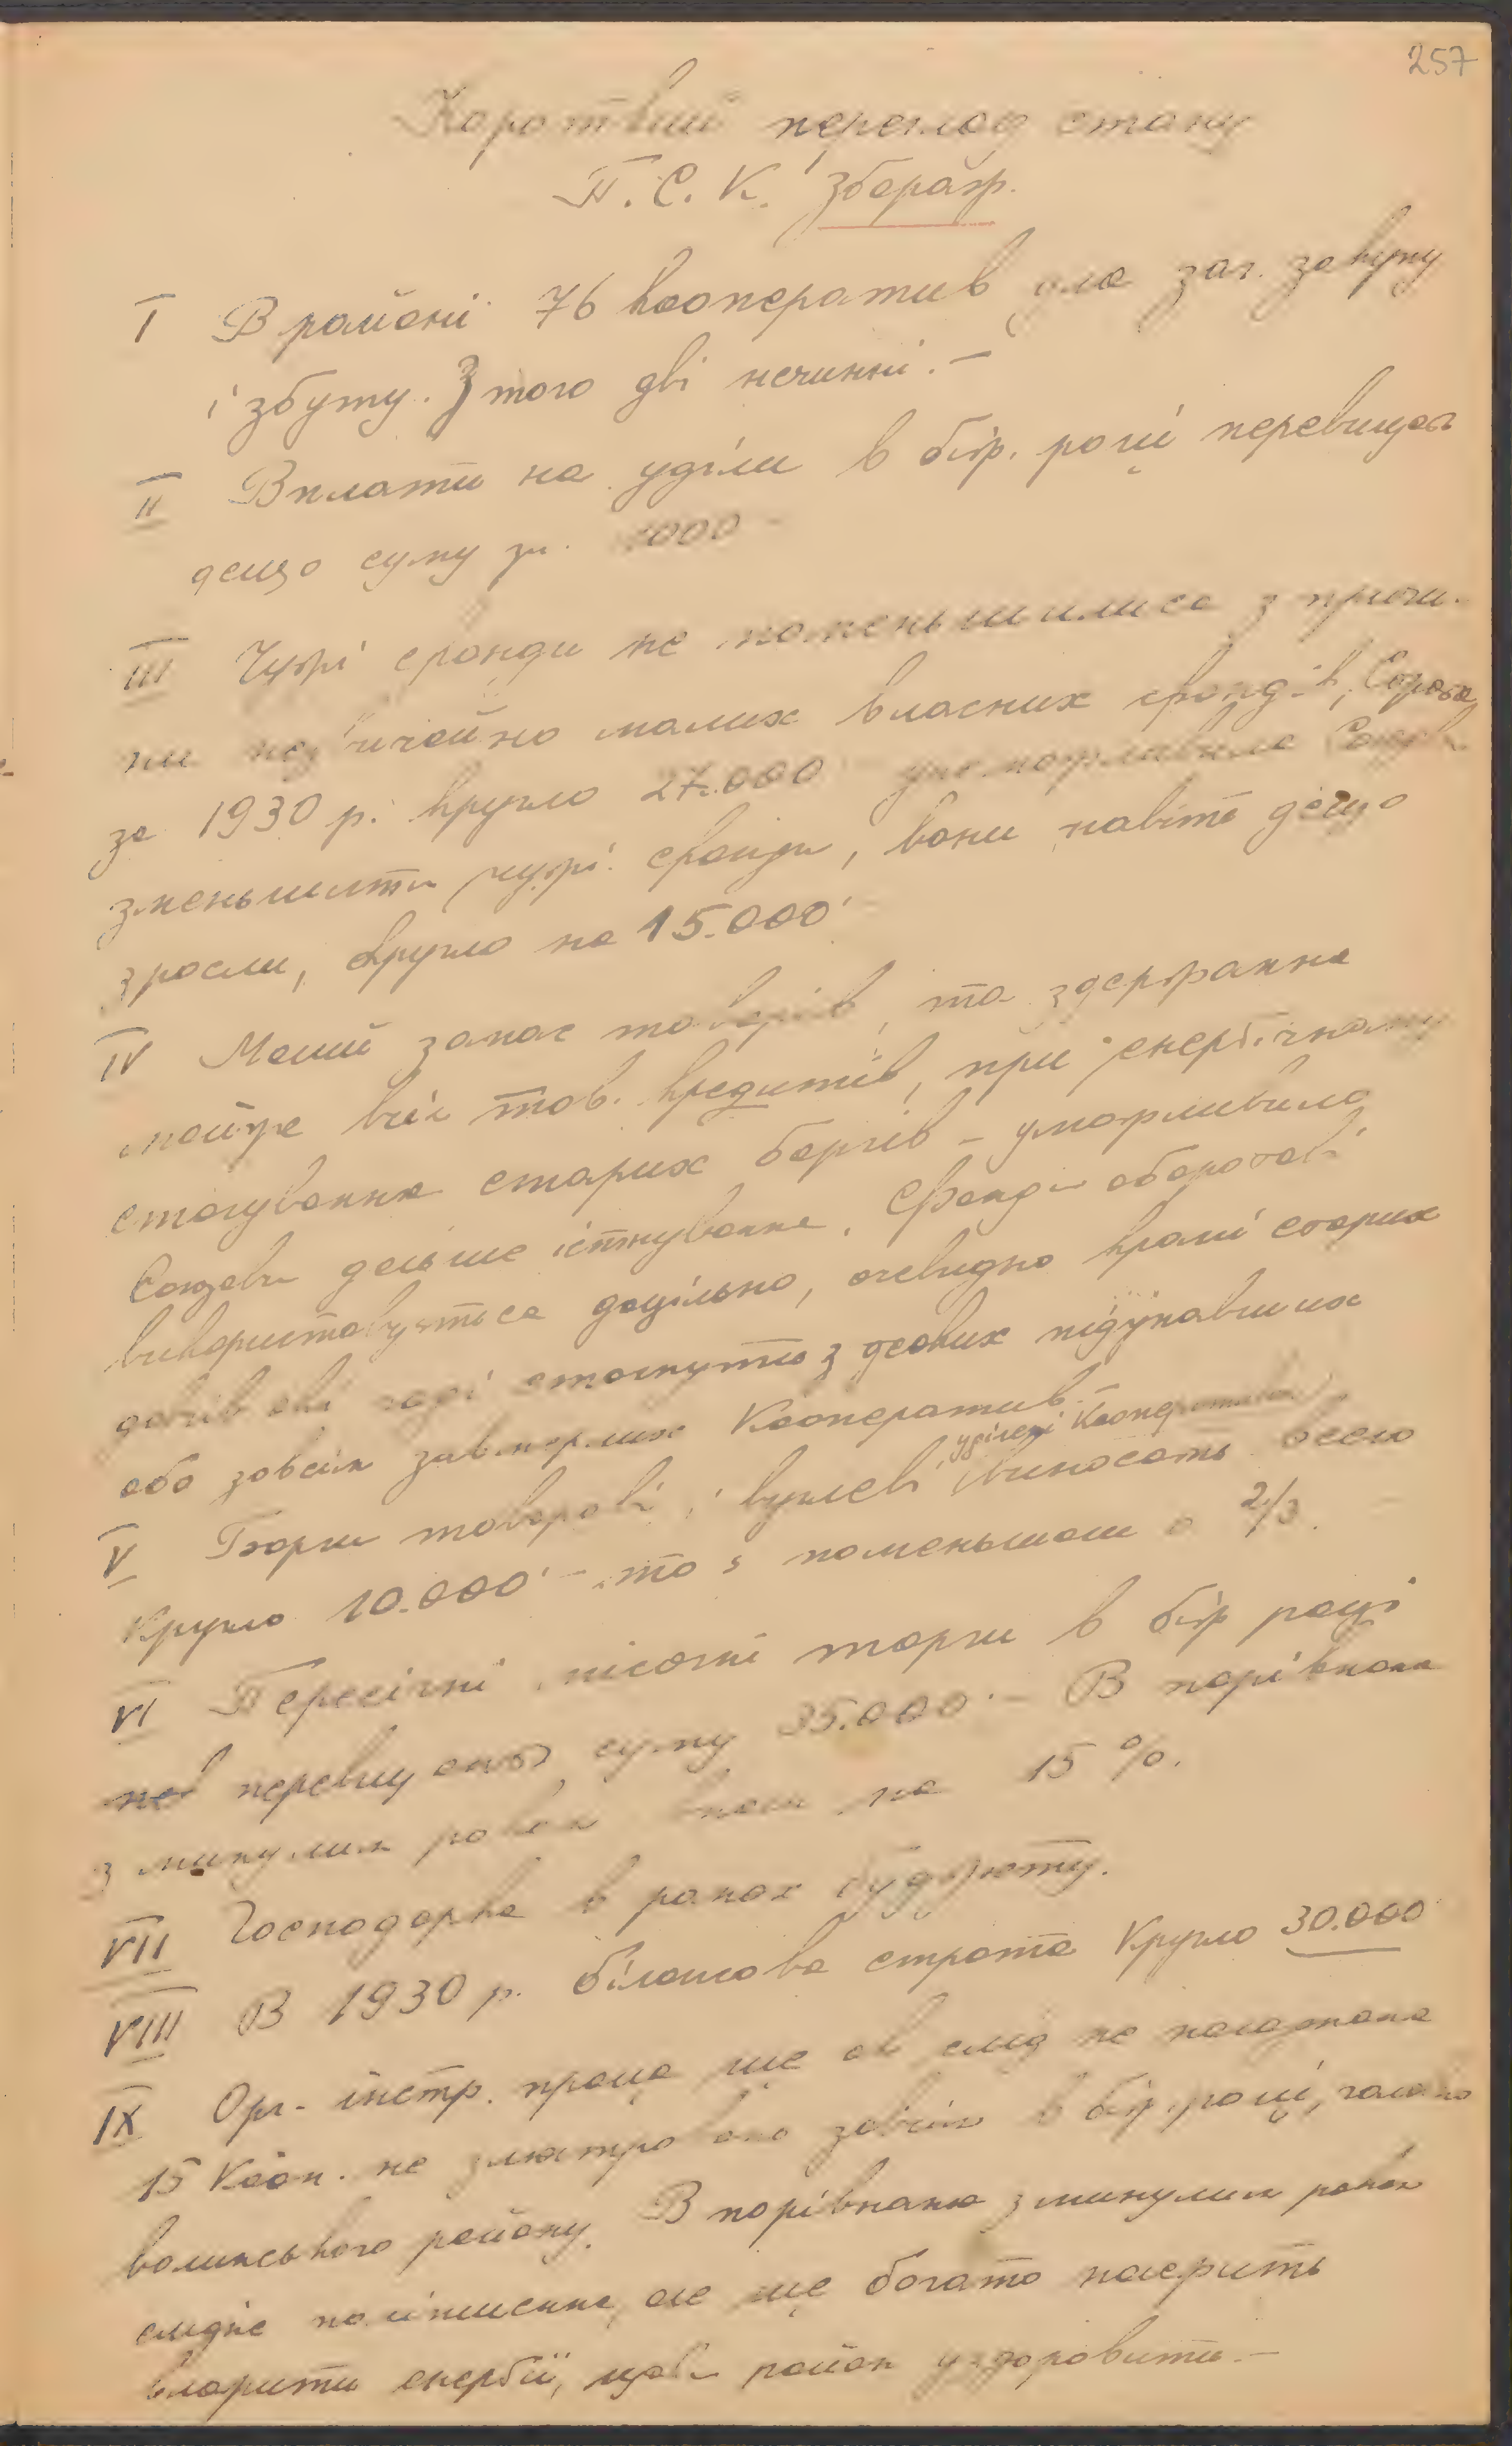 257
Короткий переглод стану
П. С. К. Збараж.
I В районі 76 кооператив для заг. закупу
і збуту. З того дві нечинні. –
II Вплати на уділи в біж. році перевищая
дещо суму зл. 1000 –
III Чужі фонди не поменьшилися з причи-
ни незвичайно малих власних фондів,
за 1930 р. кругло 27.000 унеможливила Союзови
зменьшити чужі фонди, вони навіть дещо
зросли, кругло на 15.000
IV Малий запас товарів, та здержання
майже всіх тов. кредитів, при енергічному
стягуванню старих боргів – уможливило
Союзови дальше істнування. Фонди оборотові
використовуються доцільно, очевидно кромі старих
довгів які годі стягнути з деяких підупавших
або зовсім завмерлих Кооператив.
V Борги товарові і вуглеві уділені Кооперативам виносять всего
Кругло 10.000 – то є поменьшали о 2/3.
VI Пересічні місячні торги в біж році
не перевищають суму 35.000 – В порівнаню
з минулим роком на 15 %.
VII Господарка в рамах буджету.
VIII В 1930 р. білянсова страта Кругло 30.000
IX Орг. інстр. праця ще як слід не налагожена
15 Кооп. не злюстровано зовсім в біж. році,
волинського району. В порівнаню з минулим роком
слідне поліпшення, але ще богато належить
вложити енергії, щоби район уздоровити. –